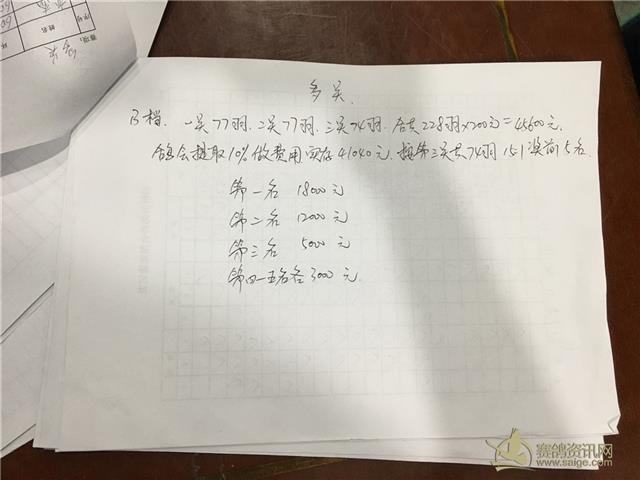 多关
B档. 一关77羽. 二关77羽. 三关74羽. 合共228羽×200元=45600元.
鸽会提取10%做费用.实存41040元.按第三关共74羽 15:1奖前5名.
第一名 18000元
第二名 12000元
第三名 5000元
第四一五名各3000元.
赛鸽资讯网
www.saige.com